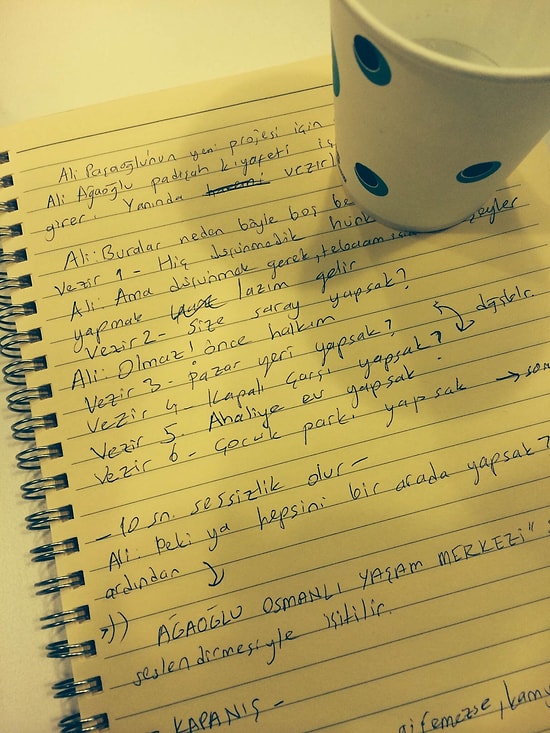 Ali Paşaoğlu'nun yeni projesi için
Ali Ağaoğlu padişah kıyafeti iç
girer. Yanında vezirl
Ali: Buralar neden böyle boş be
Vezir 1 - Hiç düşünmedik hünk
Ali: Ama düşünmek gerek, şeyler
yapmak lazım gelir
Vezir 2 - Size saray yapsak?
Ali: Olmaz! önce halkım
Vezir 3 - Pazar yeri yapsak?
Vezir 4 - Kapalı çarşı yapsak? değiştir.
Vezir 5. Ahaliye ev yapsak.
Vezir 6 - Çocuk parkı yapsak → son
- 10 sn. sessizlik olur -
Ali: Peki ya hepsini bir arada yapsak?
ardından
AĞAOĞLU OSMANLI YAŞAM MERKEZİ"
seslendirmesiyle işitilir.
KAPANIŞ -